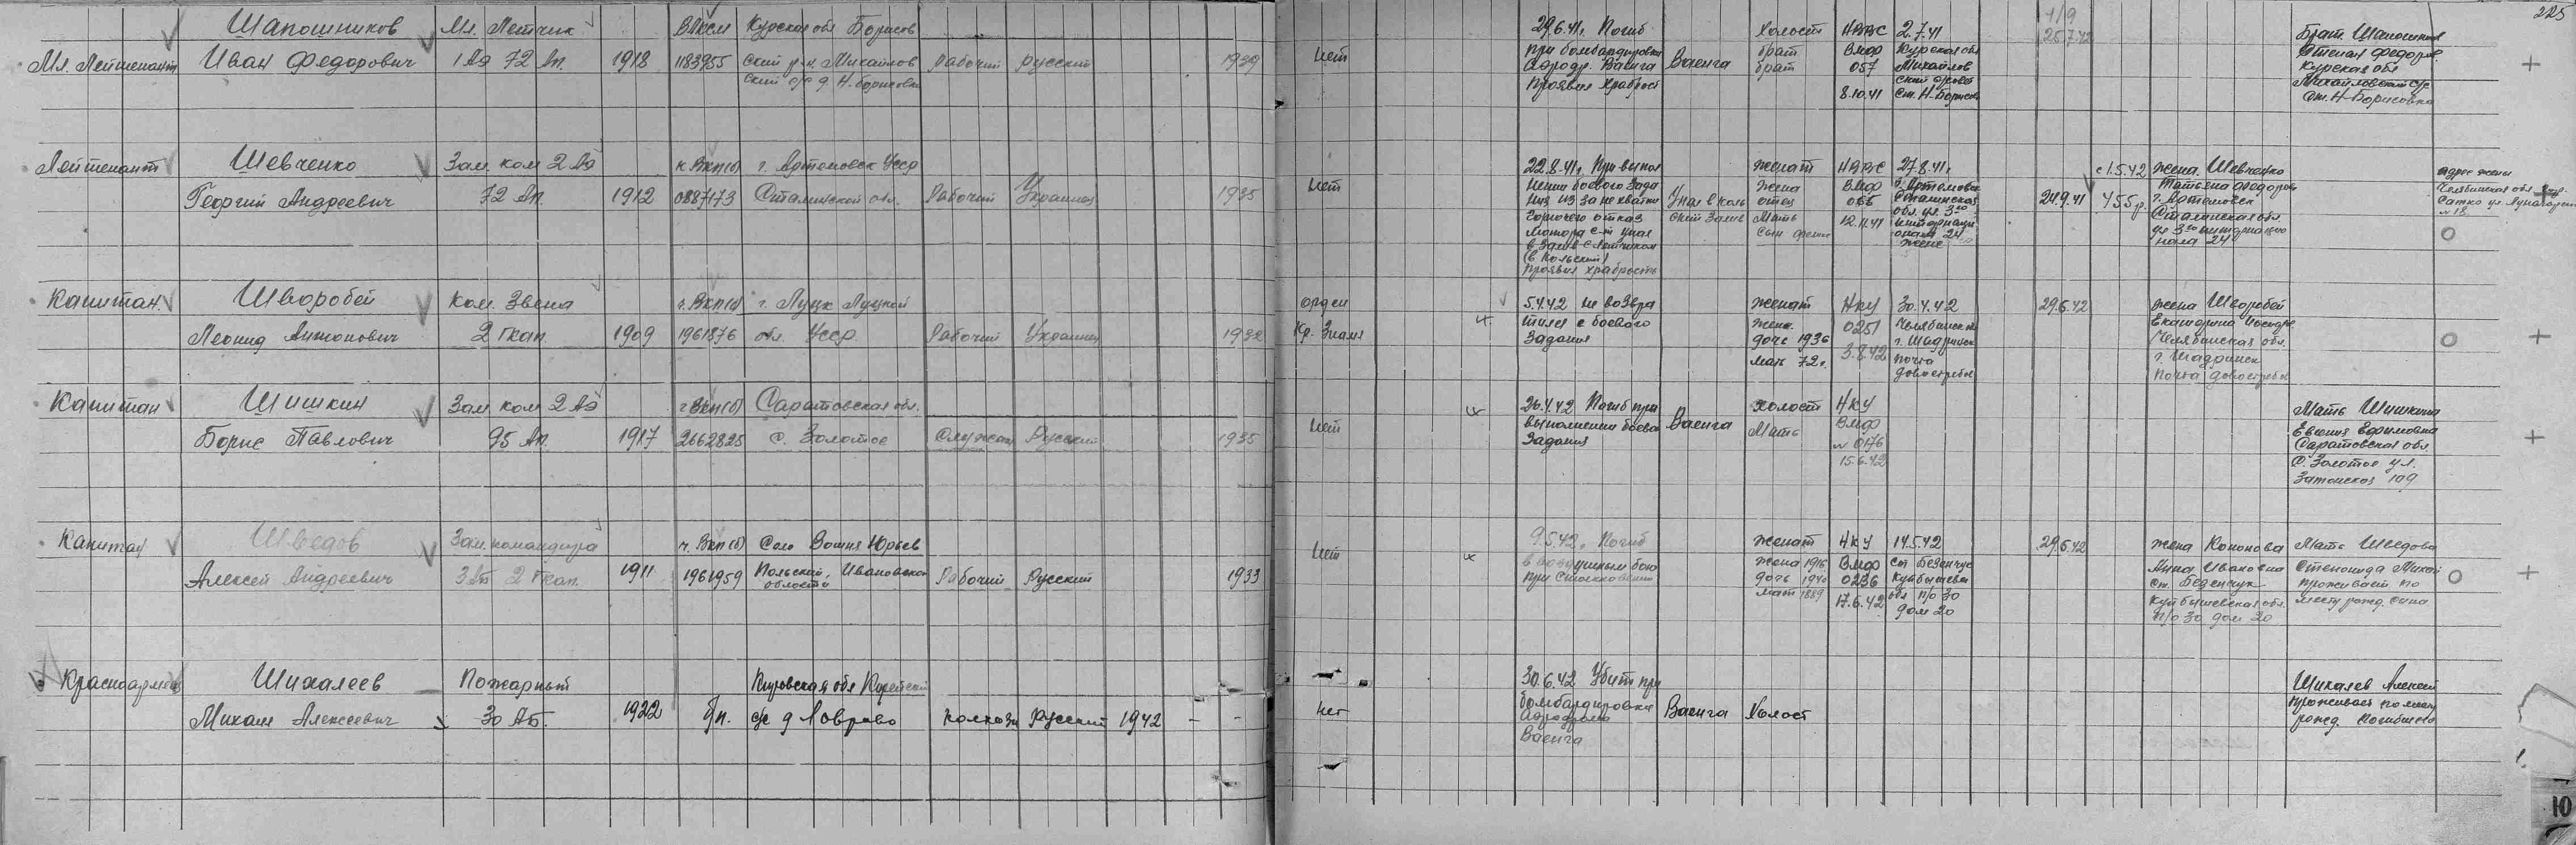 225
Шапошников Мл. Летчик ВЛКСМ Курская обл Борисов 29.6.41г. Погиб Холост НВВС 2.7.41 1/9 Брат Шапошников
Мл. Лейтенант Иван Федорович 1 Аэ 72 Ап 1918 1183955 ский р-н, Михайлов Рабочий русский 1939 нет при бомбардировке Ваенга брат ВМФ Курская обл 25.7.42 Степан Федоров.
ский с/с д. Н-Борисовка Аэродр. Ваенга брат 057 Михайлов Курская обл
Проявил храброст 8.10.41 ский с/совет Михайловский с/с
ст. Н-Борисов ст. Н-Борисовка
Шевченко Зам. ком 2 Аэ к. ВКП(б) г. Артемовск УССР 22.8.41г. При выпол женат НВВС 27.8.41г. с 1.5.42 жена Шевченко адрес жены
Лейтенант Георгий Андреевич 72 Ап. 1912 0887173 Сталинской обл. Рабочий Украинец 1935 нет нении боевого зада Упал в Коль жена ВМФ г. Артемовск 24.9.41 455 р. Татьяна Федоров Челябинская обл
ния из за не хватки ский залив отец 066 Сталинская г. Артемовск
горючего отказ мать 12.11.41 обл. ул. 3го Сталинская обл. № 18
мотора с-т упал сын интернаци ул 3го интернацио
в залив с летчиком онала 24 нала 24
(в Кольский) жене
проявил храбрость
Капитан Шворобей Ком. Звена ч. ВКП(б) г. Луцк Луцкой орден 5.4.42 не возвра женат НКУ 30.4.42 29.6.42 жена Шворобей
Леонид Антонович 2 гкап. 1909 1961876 обл. УССР Рабочий Украинец 1932 Кр. Знамя тился с боевого жена 0251 Челябинск Екатерина
задания дочь 1936 3.8.42 г. Шадринск Челябинская обл.
мать 72г. почта г. Шадринск
довостребов Почта довостребов
Капитан Шишкин Зам. ком 2 Аэ ВКП(б) Саратовская обл. 26.4.42 Погиб при холост НКУ Мать Шишкина
Борис Павлович 95 Ап. 1917 2662825 с. Золотое Служащ Русский 1935 нет выполнении боево Ваенга Мать ВМФ Евгения Ефимовна
задания № 0176 Саратовская обл.
15.6.42 С. Золотое ул.
Затонская 109
Капитан Шведов Зам. командира ч. ВКП(б) Село Вошня Юрьев 9.5.42г. Погиб женат НКУ 14.5.42 29.6.42 жена Кононова Мать Шведова
Алексей Андреевич 3 Аэ 2 гкап. 1911 1961959 Польский, Ивановской Рабочий Русский 1933 нет в воздушном бою жена 1916 ВМФ ст Безенчук Мина Ивановна Степонида
области при столкновении дочь 1940 0236 Куйбышева ст. Безенчук проживает по
мать 1889 17.6.42 обл п/о 30 Куйбышевская обл. месту рожд. сына
дом 20 п/о 30 дом 20
Красноармеец Шихалеев Пожарный Кировская обл 30.6.42 Убит при Шихалев Алексей
Михаил Алексеевич 30 АБ. 1922 б/п. с/с д Лаврово колхозн Русский 1942 - - нет бомбардировке Ваенга Холост проживает по месту
Аэродрома рожд. погибшего
Ваенга
10